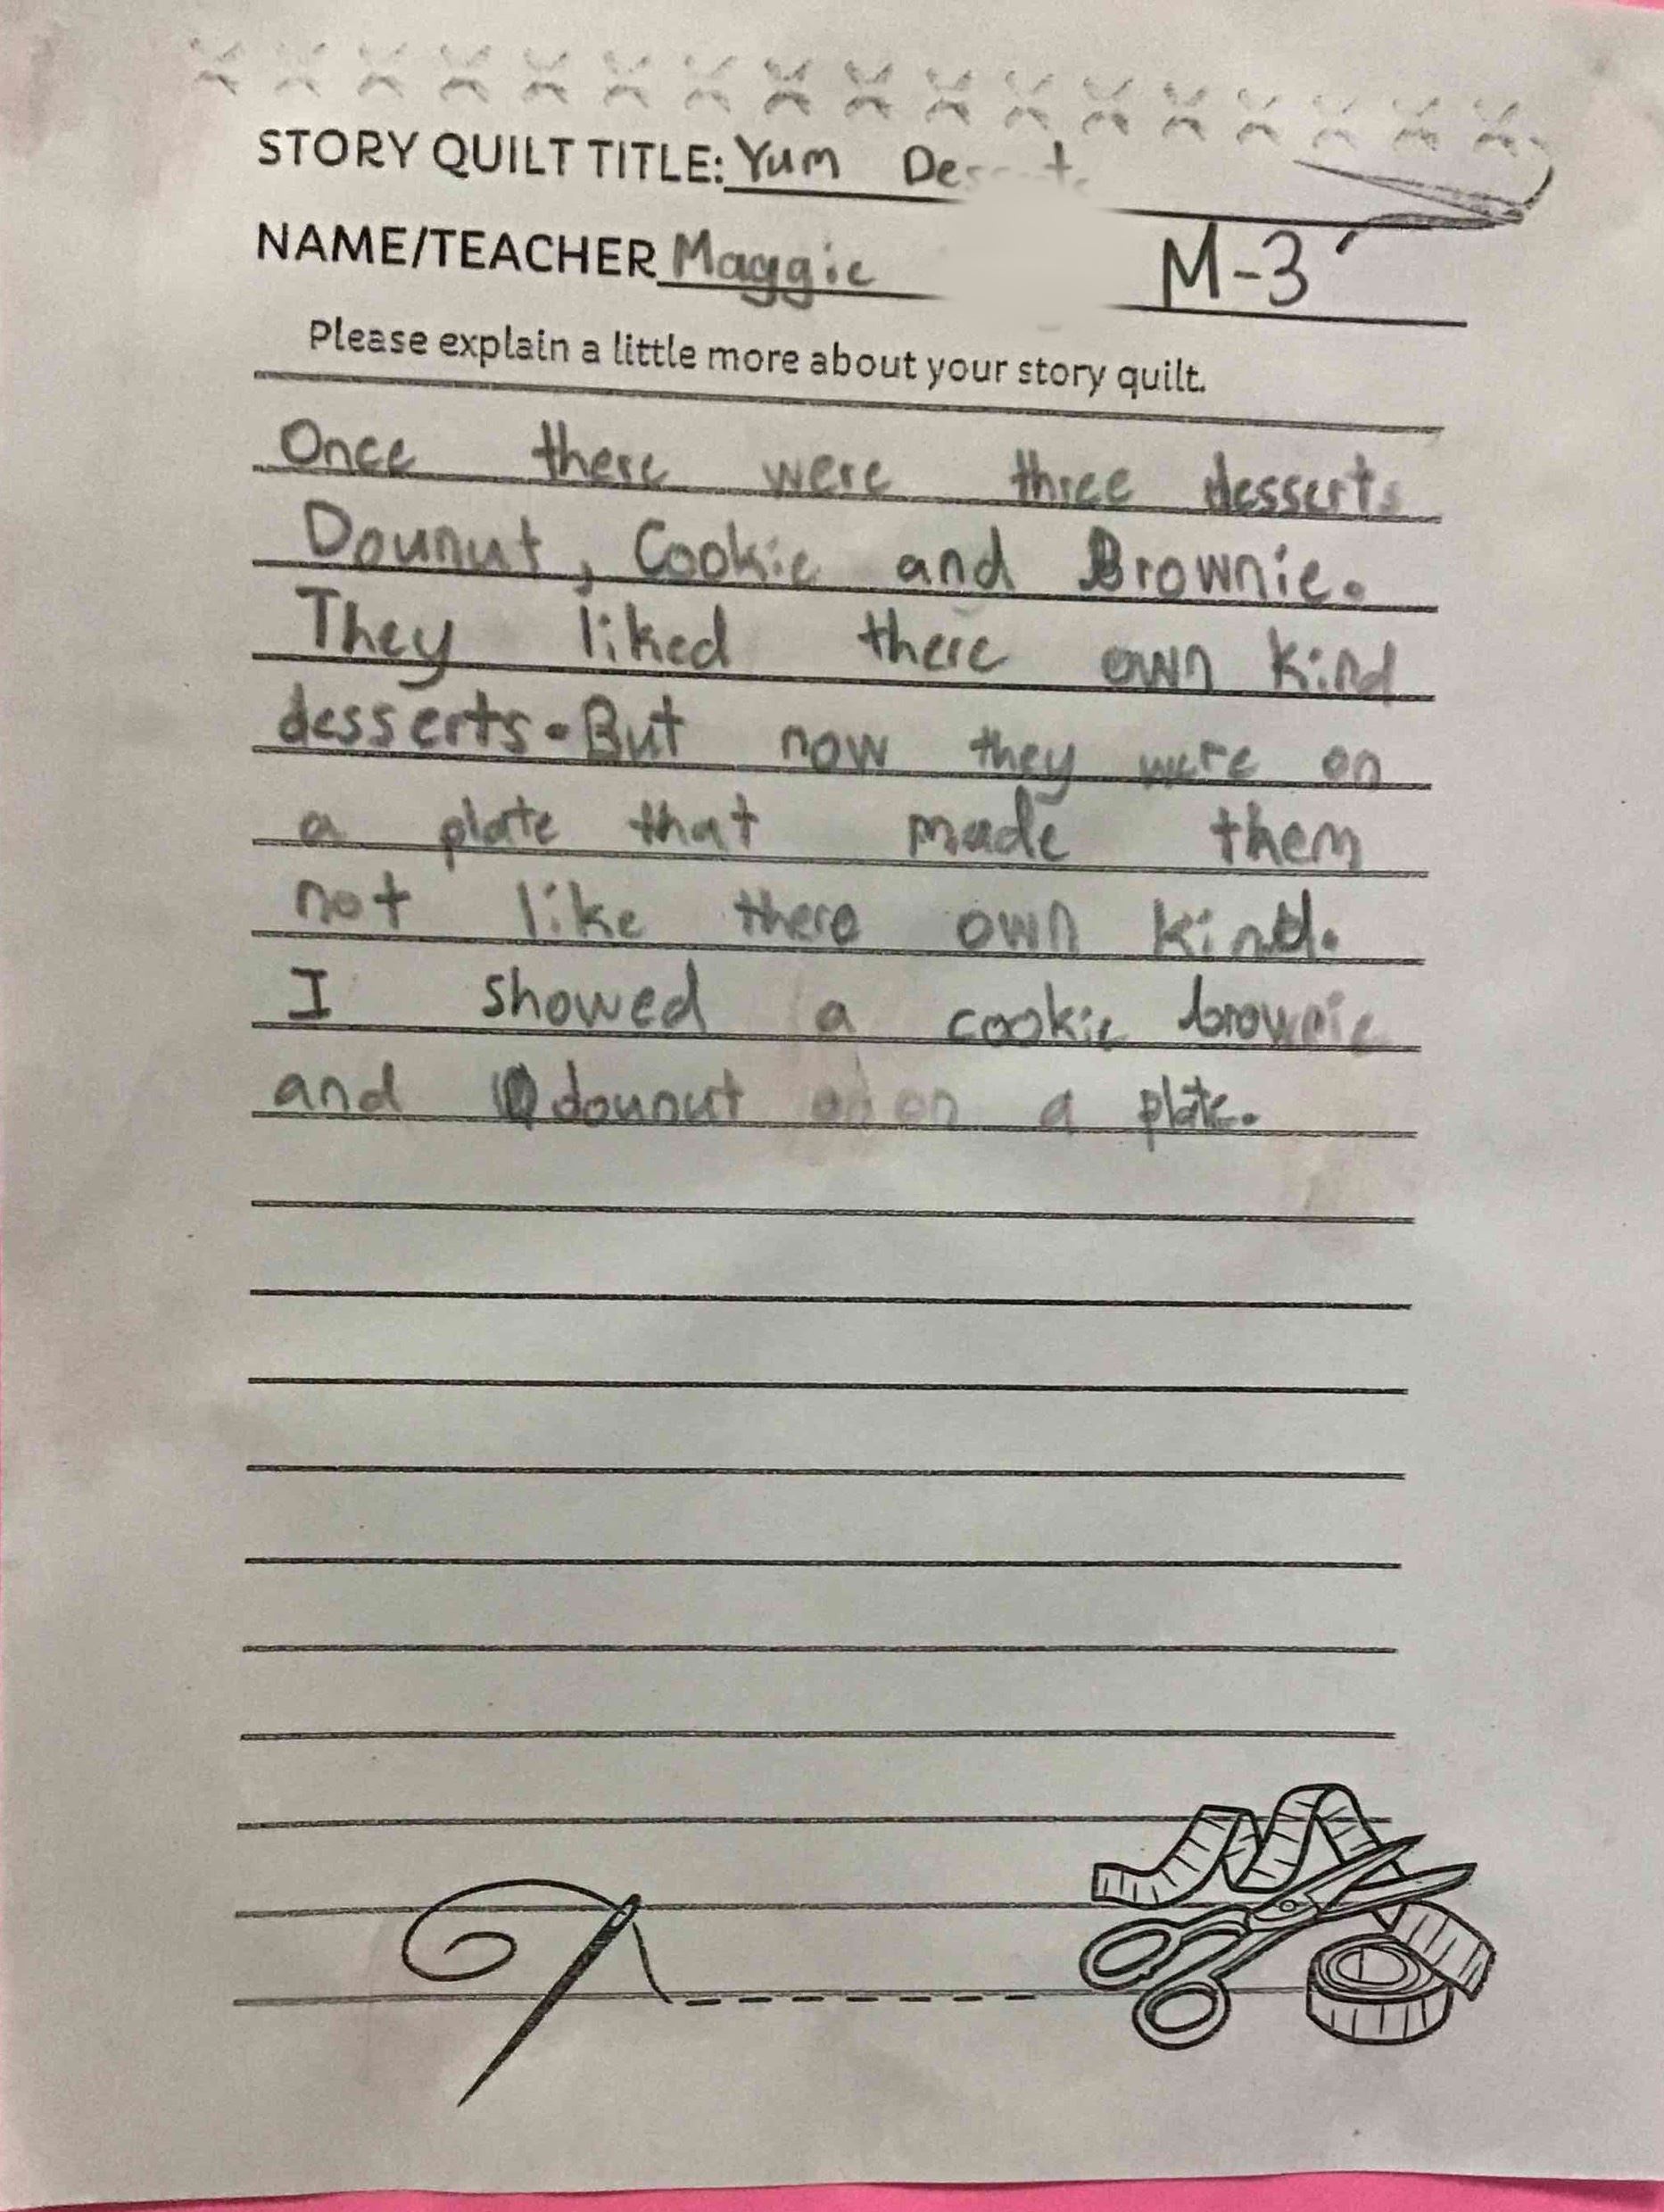 STORY QUILT TITLE: Yum
NAME/TEACHER Maggie M-3
Please explain a little more about your story quilt.
Once there were three desserts
Dounut, Cookie and Brownie.
They liked there own kind
desserts. But now they were on
a plate that made them
not like there own kind.
I showed a cookie brownie
and dounut on a plate.